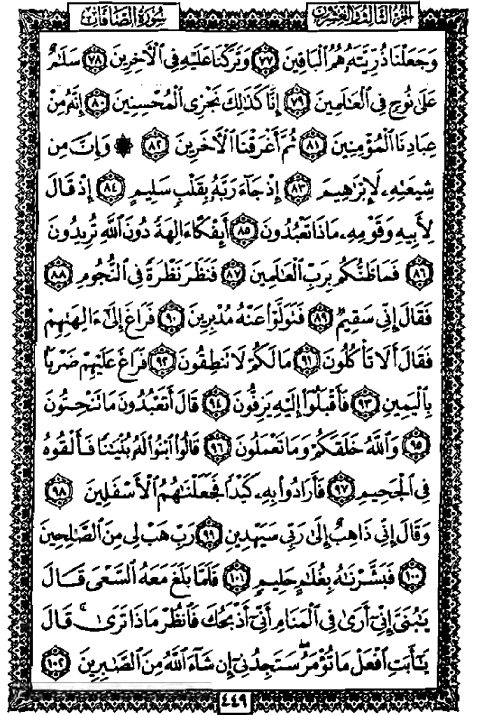 الجزء الثالث والعشرون
سورة الصافات
وَجَعَلْنَا ذُرِّيَّتَهُۥ هُمُ ٱلْبَاقِينَ ٧٧ وَتَرَكْنَا عَلَيْهِ فِى ٱلْءَاخِرِينَ ٧٨ سَلَٰمٌ
عَلَىٰ نُوحٍ فِى ٱلْعَٰلَمِينَ ٧٩ إِنَّا كَذَٰلِكَ نَجْزِى ٱلْمُحْسِنِينَ ٨٠ إِنَّهُۥ مِنْ
عِبَادِنَا ٱلْمُؤْمِنِينَ ٨١ ثُمَّ أَغْرَقْنَا ٱلْءَاخَرِينَ ٨٢ ۞ وَإِنَّ مِن
شِيعَتِهِۦ لَإِبْرَٰهِيمَ ٨٣ إِذْ جَآءَ رَبَّهُۥ بِقَلْبٍ سَلِيمٍ ٨٤ إِذْ قَالَ
لِأَبِيهِ وَقَوْمِهِۦ مَاذَا تَعْبُدُونَ ٨٥ أَئِفْكًا ءَالِهَةً دُونَ ٱللَّهِ تُرِيدُونَ
٨٦ فَمَا ظَنُّكُم بِرَبِّ ٱلْعَٰلَمِينَ ٨٧ فَنَظَرَ نَظْرَةً فِى ٱلنُّجُومِ ٨٨
فَقَالَ إِنِّى سَقِيمٌ ٨٩ فَتَوَلَّوْا۟ عَنْهُ مُدْبِرِينَ ٩٠ فَرَاغَ إِلَىٰٓ ءَالِهَتِهِمْ
فَقَالَ أَلَا تَأْكُلُونَ ٩١ مَا لَكُمْ لَا تَنطِقُونَ ٩٢ فَرَاغَ عَلَيْهِمْ ضَرْبًۢا
بِٱلْيَمِينِ ٩٣ فَأَقْبَلُوٓا۟ إِلَيْهِ يَزِفُّونَ ٩٤ قَالَ أَتَعْبُدُونَ مَا تَنْحِتُونَ
٩٥ وَٱللَّهُ خَلَقَكُمْ وَمَا تَعْمَلُونَ ٩٦ قَالُوا۟ ٱبْنُوا۟ لَهُۥ بُنْيَٰنًا فَأَلْقُوهُ
فِى ٱلْجَحِيمِ ٩٧ فَأَرَادُوا۟ بِهِۦ كَيْدًا فَجَعَلْنَٰهُمُ ٱلْأَسْفَلِينَ ٩٨
وَقَالَ إِنِّى ذَاهِبٌ إِلَىٰ رَبِّى سَيَهْدِينِ ٩٩ رَبِّ هَبْ لِى مِنَ ٱلصَّٰلِحِينَ
١٠٠ فَبَشَّرْنَٰهُ بِغُلَٰمٍ حَلِيمٍ ١٠١ فَلَمَّا بَلَغَ مَعَهُ ٱلسَّعْىَ قَالَ
يَٰبُنَىَّ إِنِّىٓ أَرَىٰ فِى ٱلْمَنَامِ أَنِّىٓ أَذْبَحُكَ فَٱنظُرْ مَاذَا تَرَىٰ ۚ قَالَ
يَٰٓأَبَتِ ٱفْعَلْ مَا تُؤْمَرُ ۖ سَتَجِدُنِىٓ إِن شَآءَ ٱللَّهُ مِنَ ٱلصَّٰبِرِينَ ١٠٢
٤٤٩